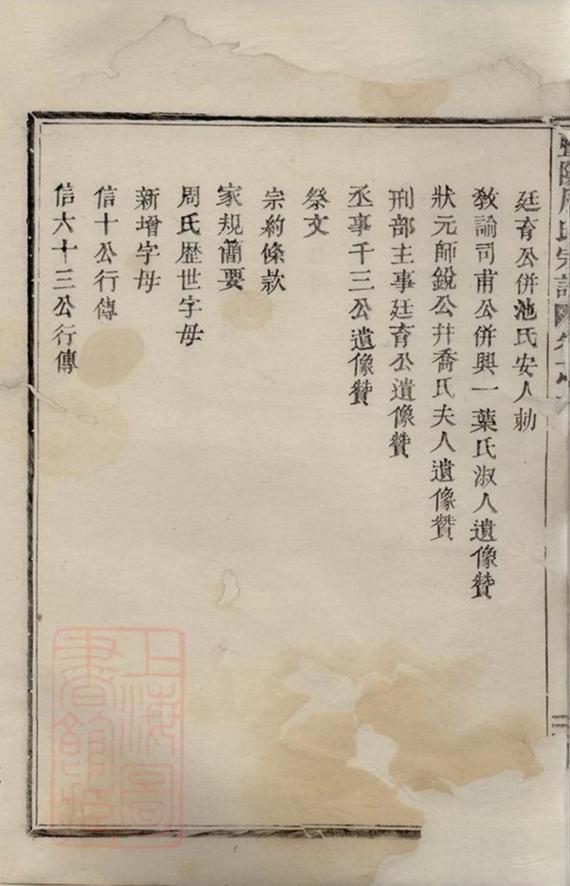 暨陽周氏宗譜
廷育公併池氏安人勅
敎諭司甫公併興一葉氏淑人遺像贊
狀元師銳公幷喬氏夫人遺像贊
刑部主事廷育公遺像贊
丞事千三公遺像贊
祭文
宗約條款
家規簡要
周氏歷世字母
新增字母
信十公行傳
信六十三公行傳
上海圖
書館藏